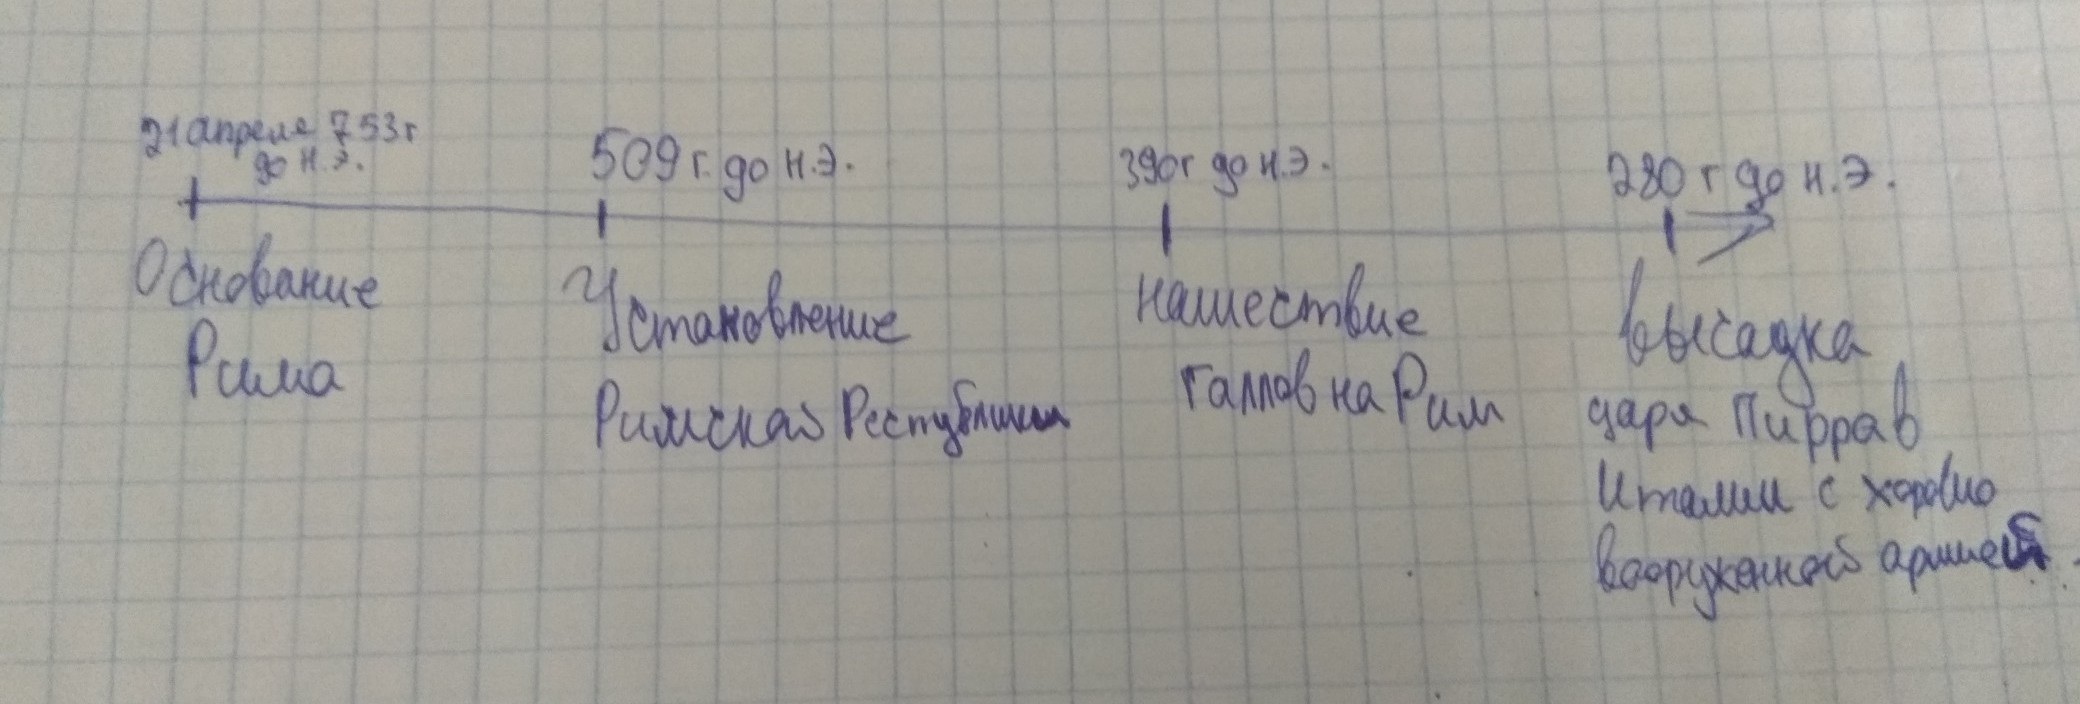 21 апреля 753 г
до н.э.
509 г. до н.э.
390 г до н.э.
280 г до н.э.
Основание
Рима
Установление
Римской Республики
нашествие
галлов на Рим
высадка
царя Пирра в
Италии с хорошо
вооруженной армией.